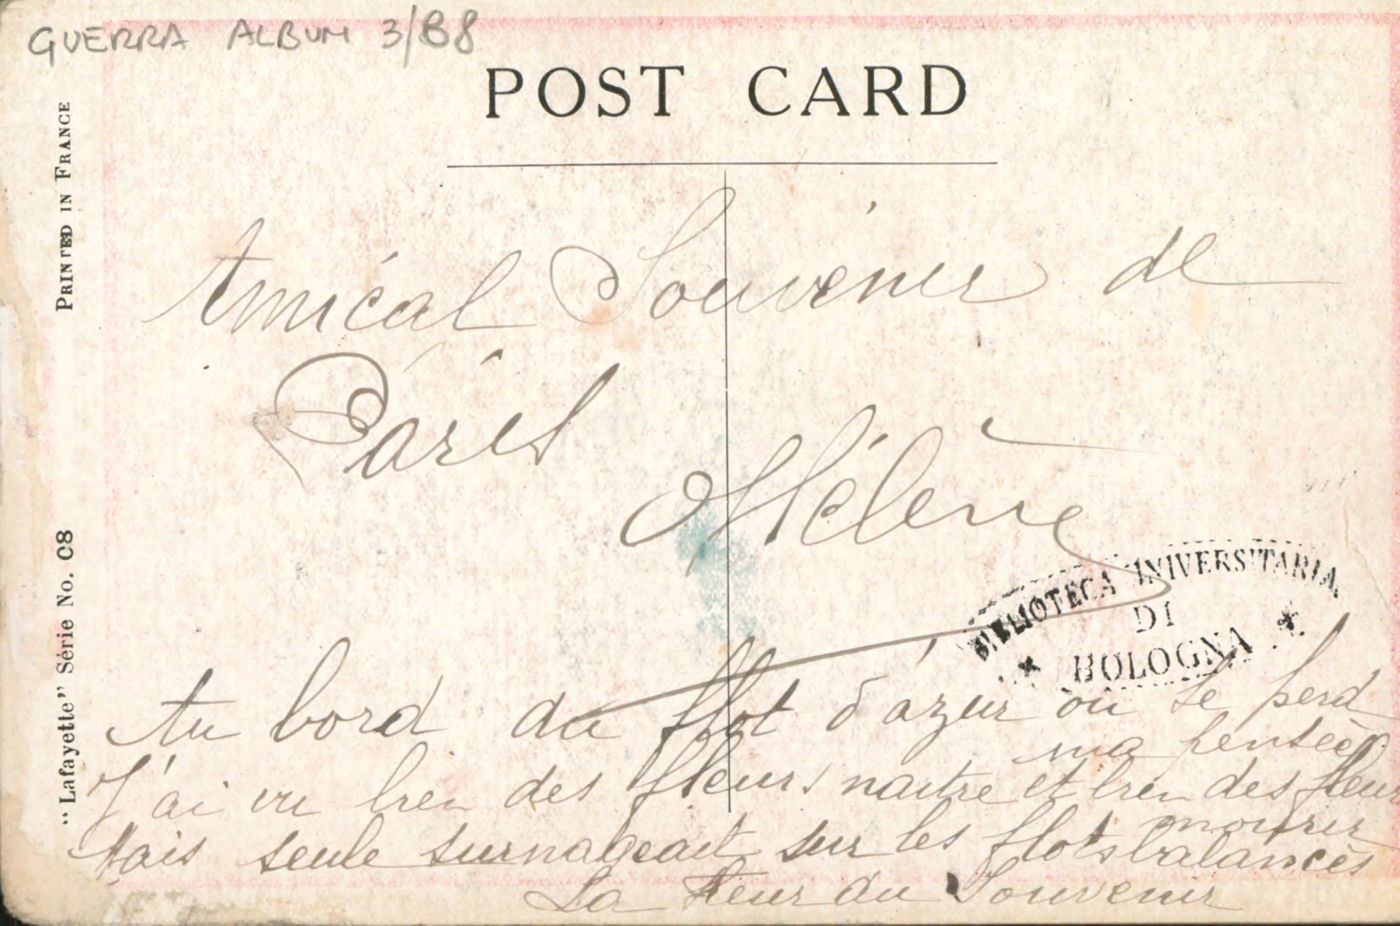 GUERRA ALBUM 3/88
POST CARD
PRINTED IN FRANCE
"Lafayette" Série No. C8
Amical Souvenir de
Paris
Hélène
BIBLIOTECA UNIVERSITARIA
DI
BOLOGNA
Au bord du flot d'azur où se perd
ma pensée
J'ai vu bien des fleurs naitre et bien des fleurs
mourir
Mais seule surnageait sur les flots balancés
La fleur du Souvenir